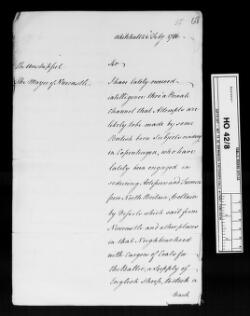 Whitehall 24 July 1786
The Mayor of Newcastle.
Sir
I have lately received
intelligence thro' a Private
channel that Attempts are
likely to be made by some
British born Subjects
in Copenhagen, who have
lately been engaged in
seducing Artificers and
from North Britain,
by Vessels which sail from
Newcastle and other places
in that Neighbourhood
with cargoes of Coals for
the Baltic, a Supply of
English Sheep,
HO 42/8